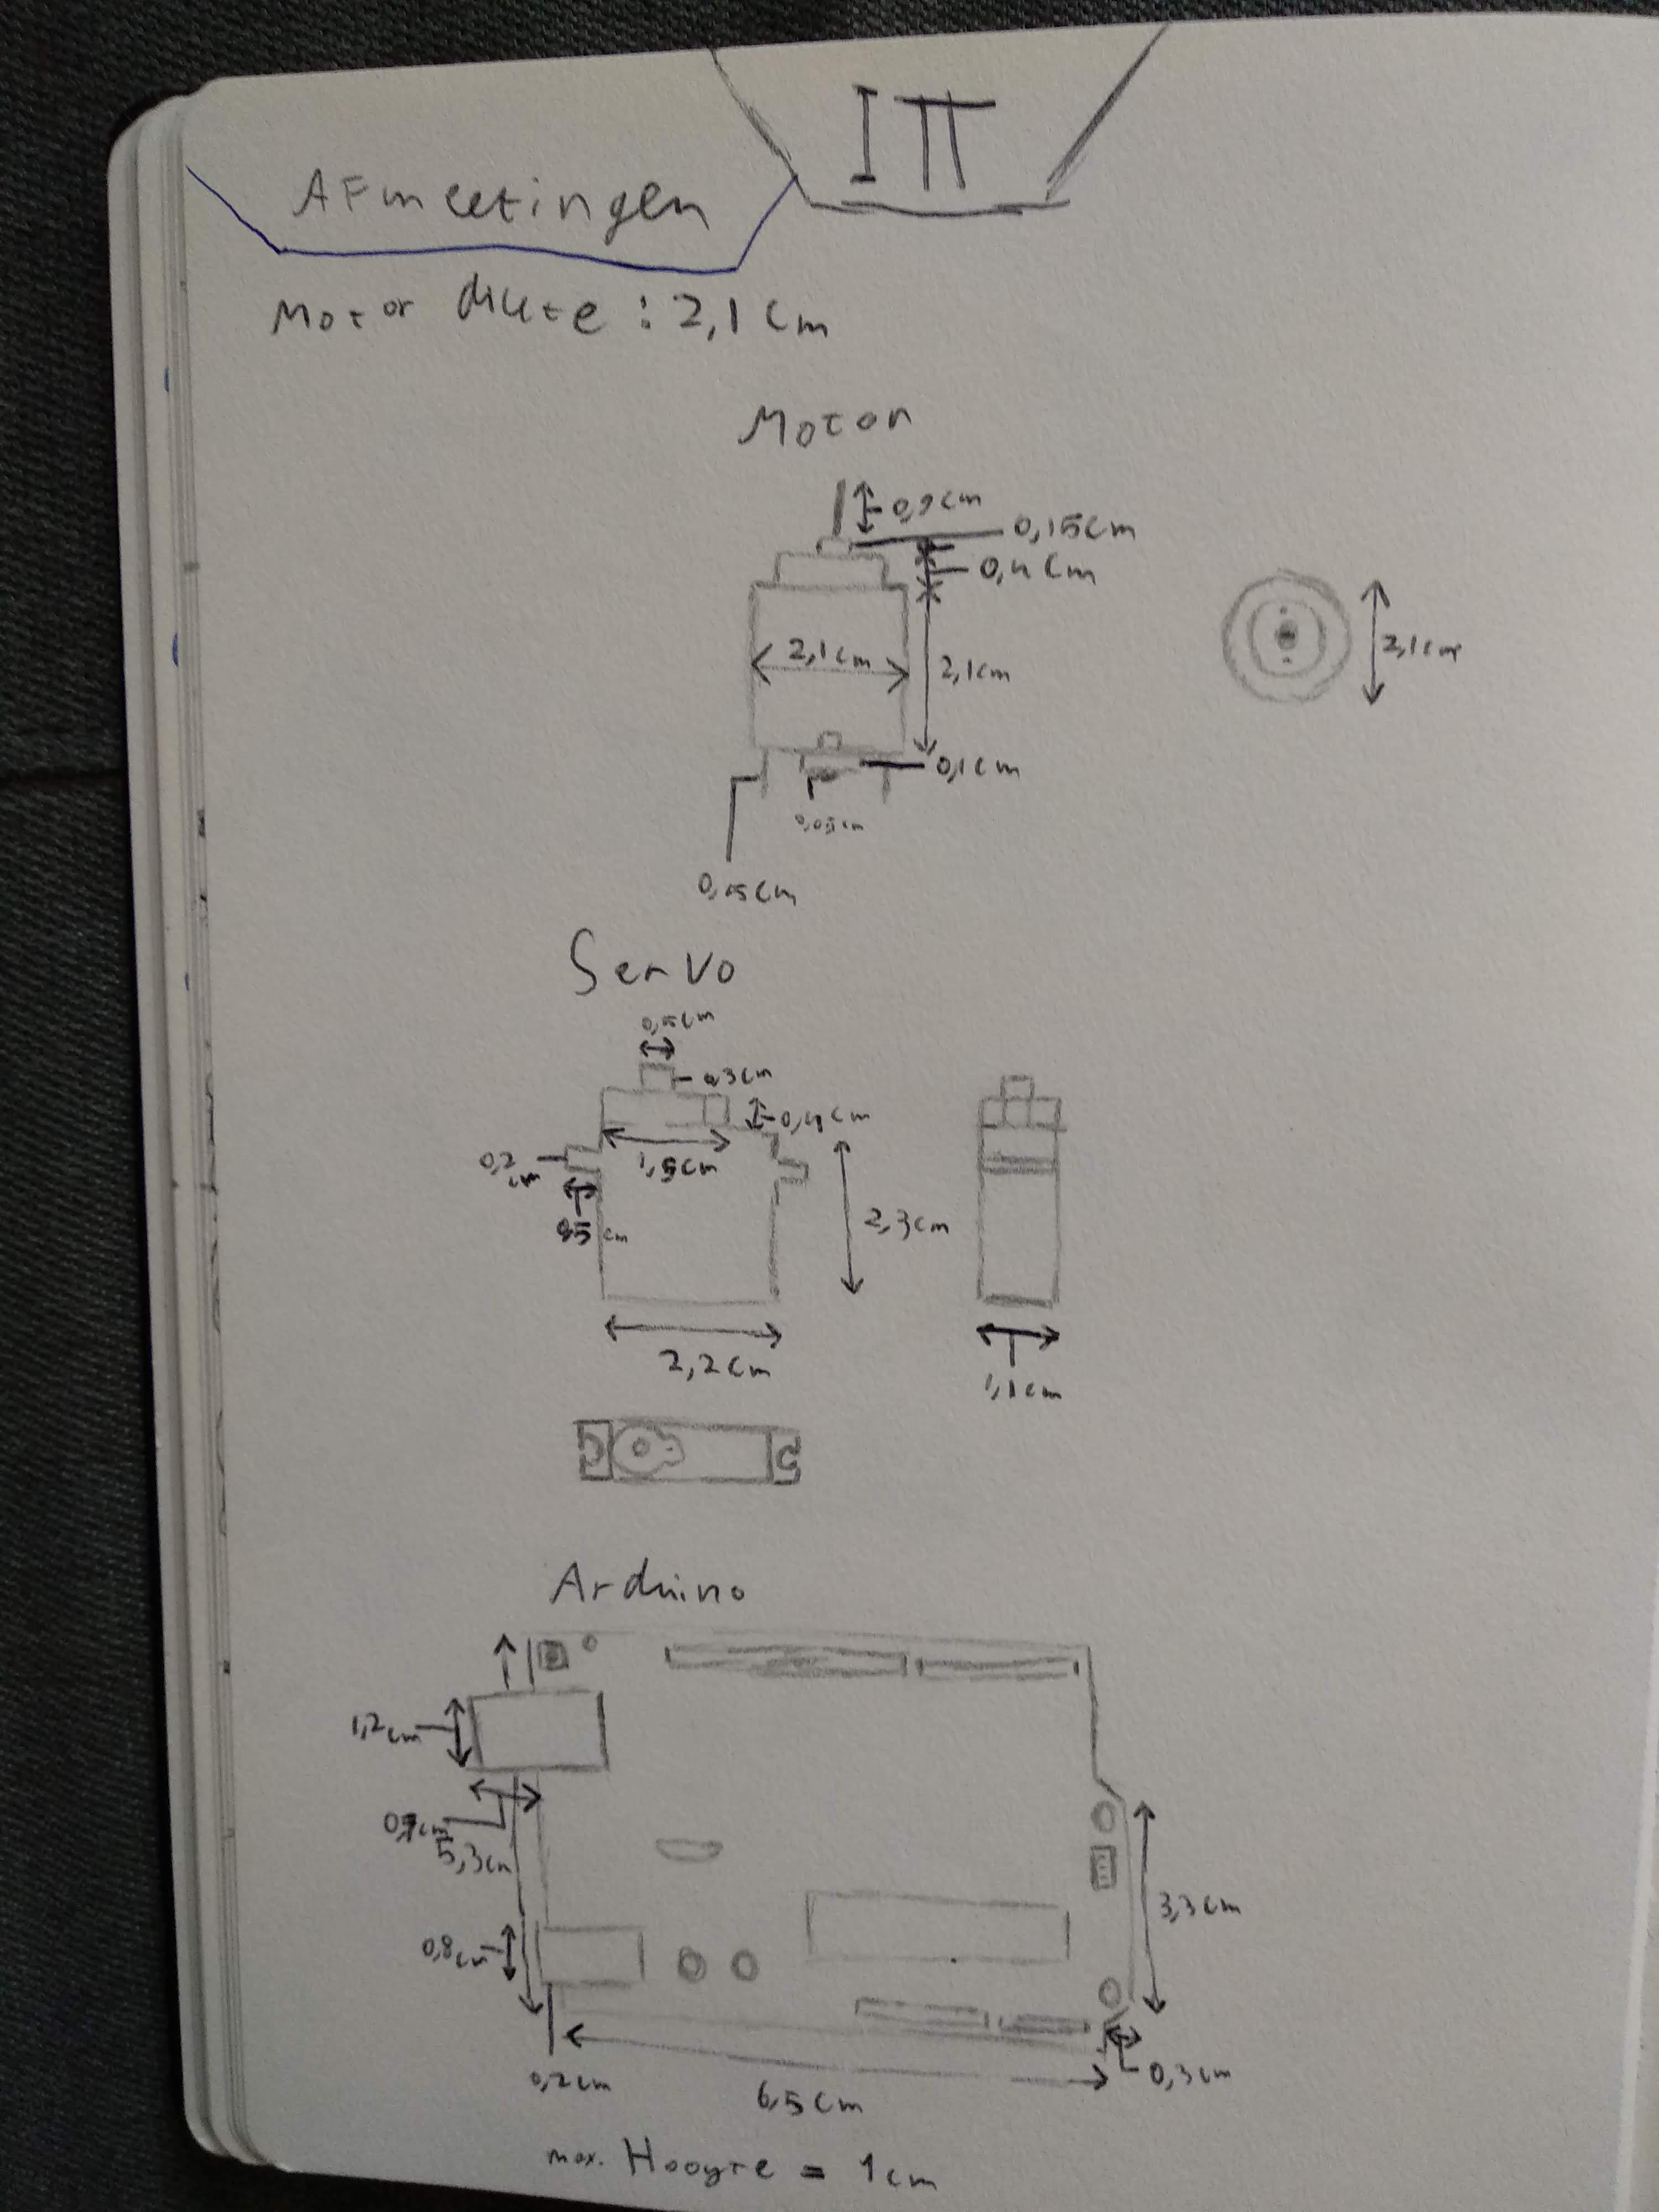 I π
AFmeetingen
Motor dikte : 2,1 cm
Motor
0,9cm
0,15cm
0,4 cm
2,1cm
2,1cm
2,1cm
0,1cm
0,05cm
Servo
0,3cm
0,4cm
0,2 cm
1,5cm
2,3cm
2,2cm
1,1cm
Arduino
1,2cm
5,3cm
3,3cm
0,8cm
0,2cm
6,5cm
0,3cm
max. Hoogte = 1cm